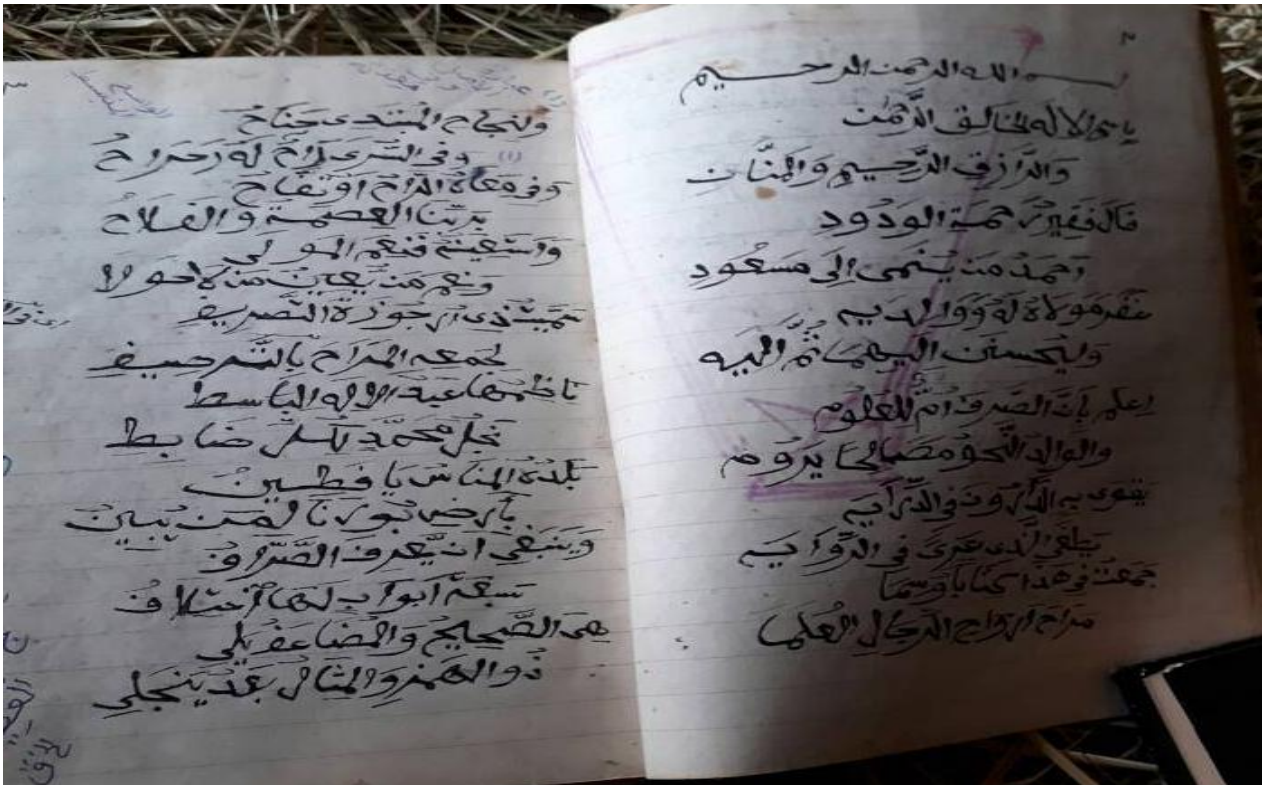 2
بسم الله الرحمن الرحيم
باسم الاله الخالق الرَّحْمٰن
والرازق الرَّحِيمِ وَالمَنَّانِ
قال فقير رحمة الودود
احمد من ينمى الى مسعود
غفر مولاه له ووالديه
وليحسنن اليهما ثُمَّ اليه
اعلم بان الصرف ام للعلوم
والوالد النحو مصالحا يروم
يقوى به الدارون في الدرايه
يطغى الذى عرى في الروايه
جمعت في هذا كتابا وسما
مراح ارواح الرجال العلما
ولنجاح المبتدى جناح
وفى السرى راح له رحراح
وفى معاه الراح او تفاح
بربنا العصمة والفلاح
واستعينه فنعم المولى
ونعم من يعين من لاحولا
سميت ذى ارجوزة التصريف
لجمعه المراح بالترصيف
ناظمها عبد الاله الباسط
نجل محمد لكل ضابط
بلدة المناس يا فطين
بأرض بورنا لمن يبين
وينبغي ان يعرف الصراف
سبعة ابواب لها اختلاف
هى الصحيح والمضاعف يلى
ذو الهمز والمثال بعد ينجلى